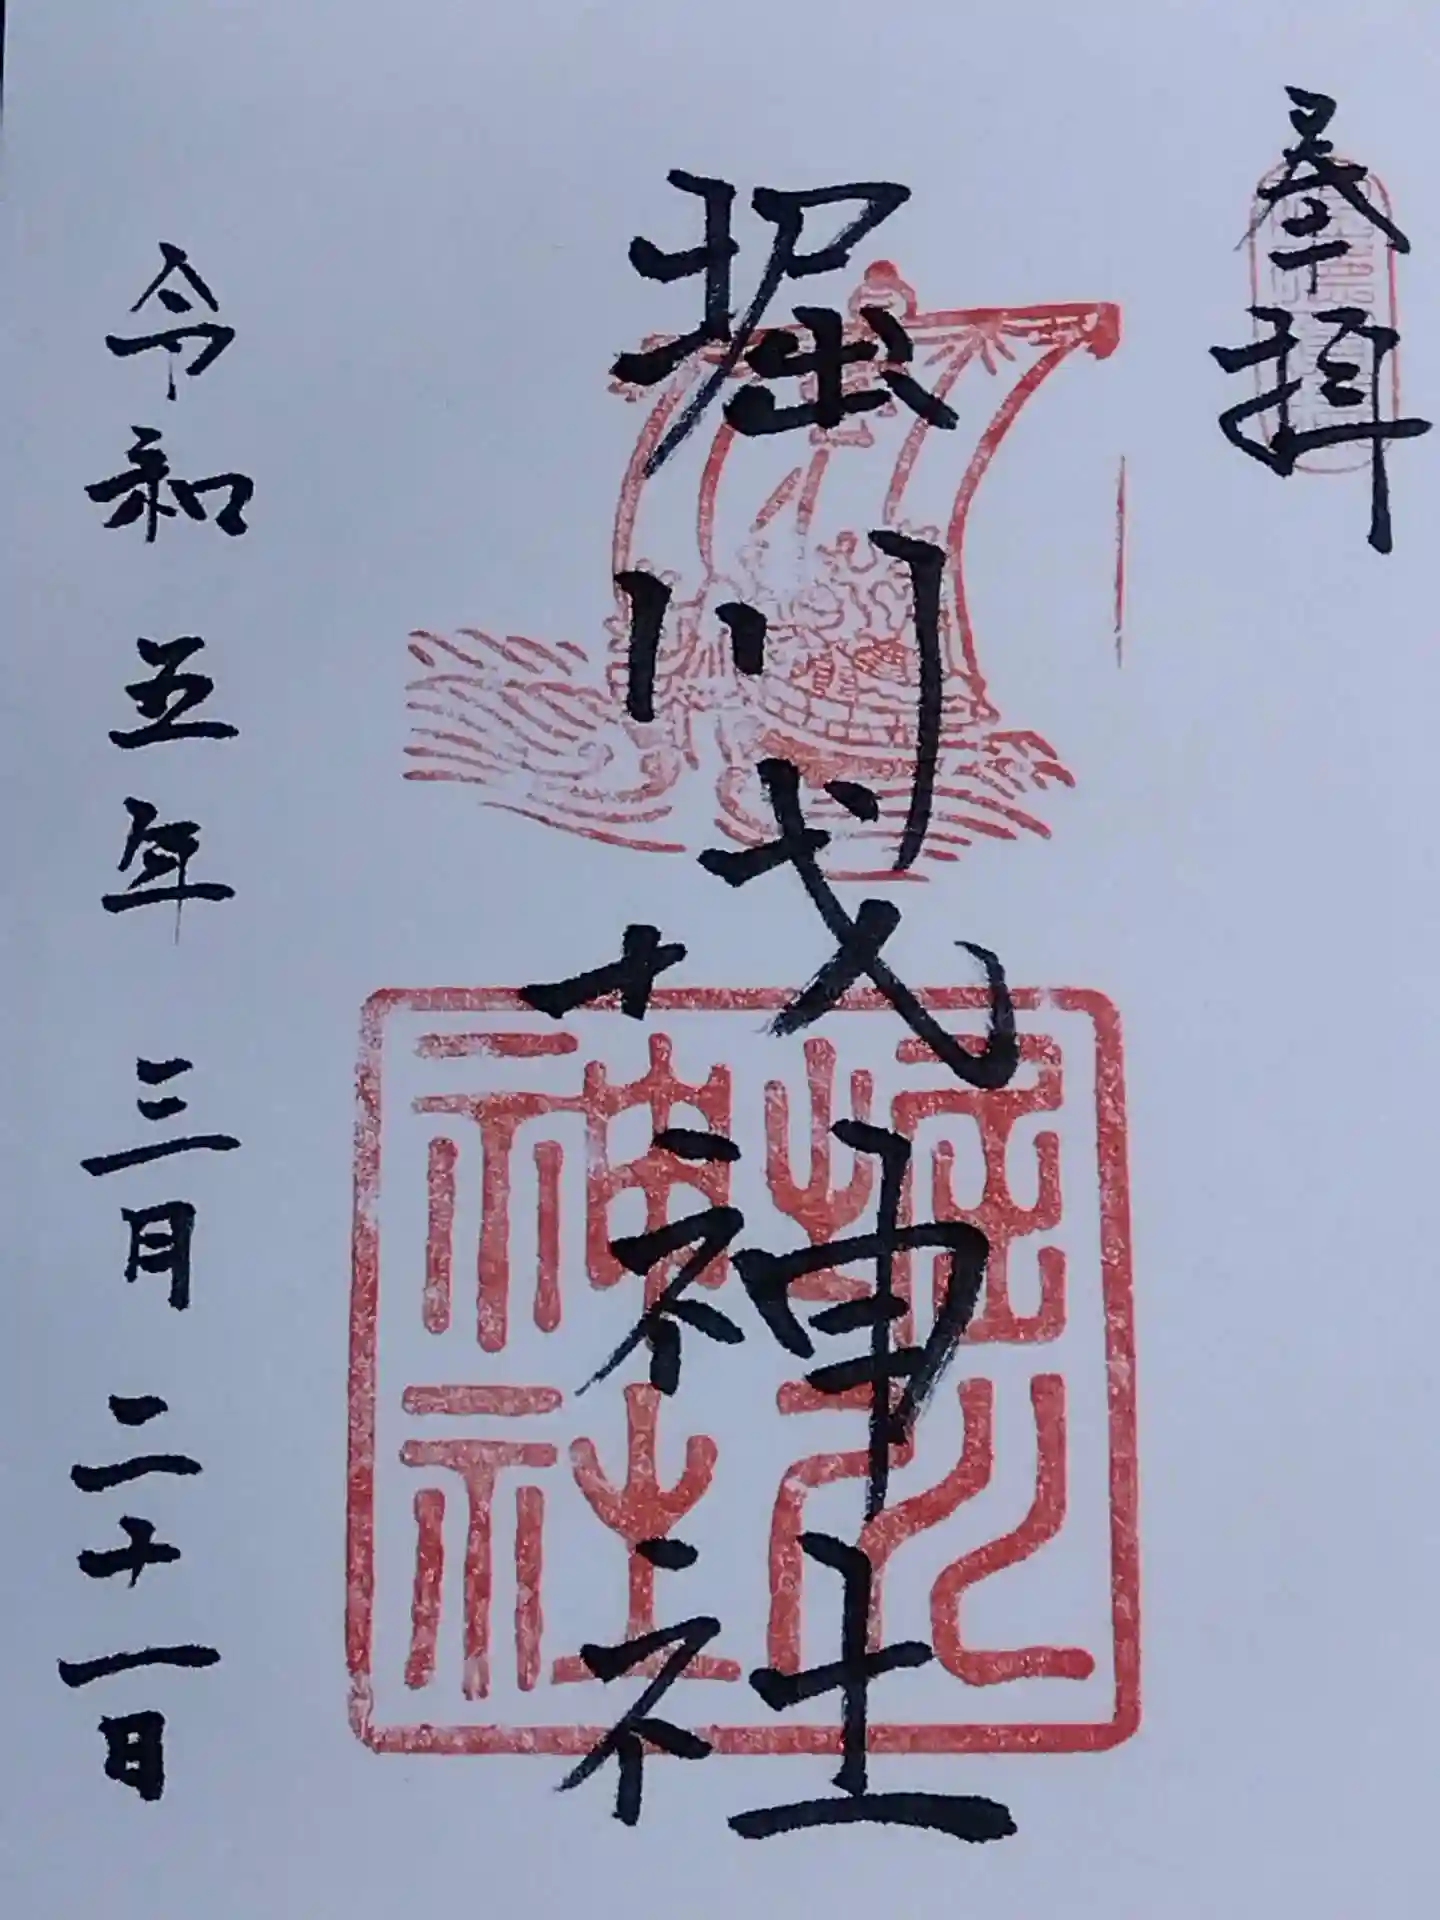 奉拝
堀川戎神社
令和五年三月二十一日
堀川
神社